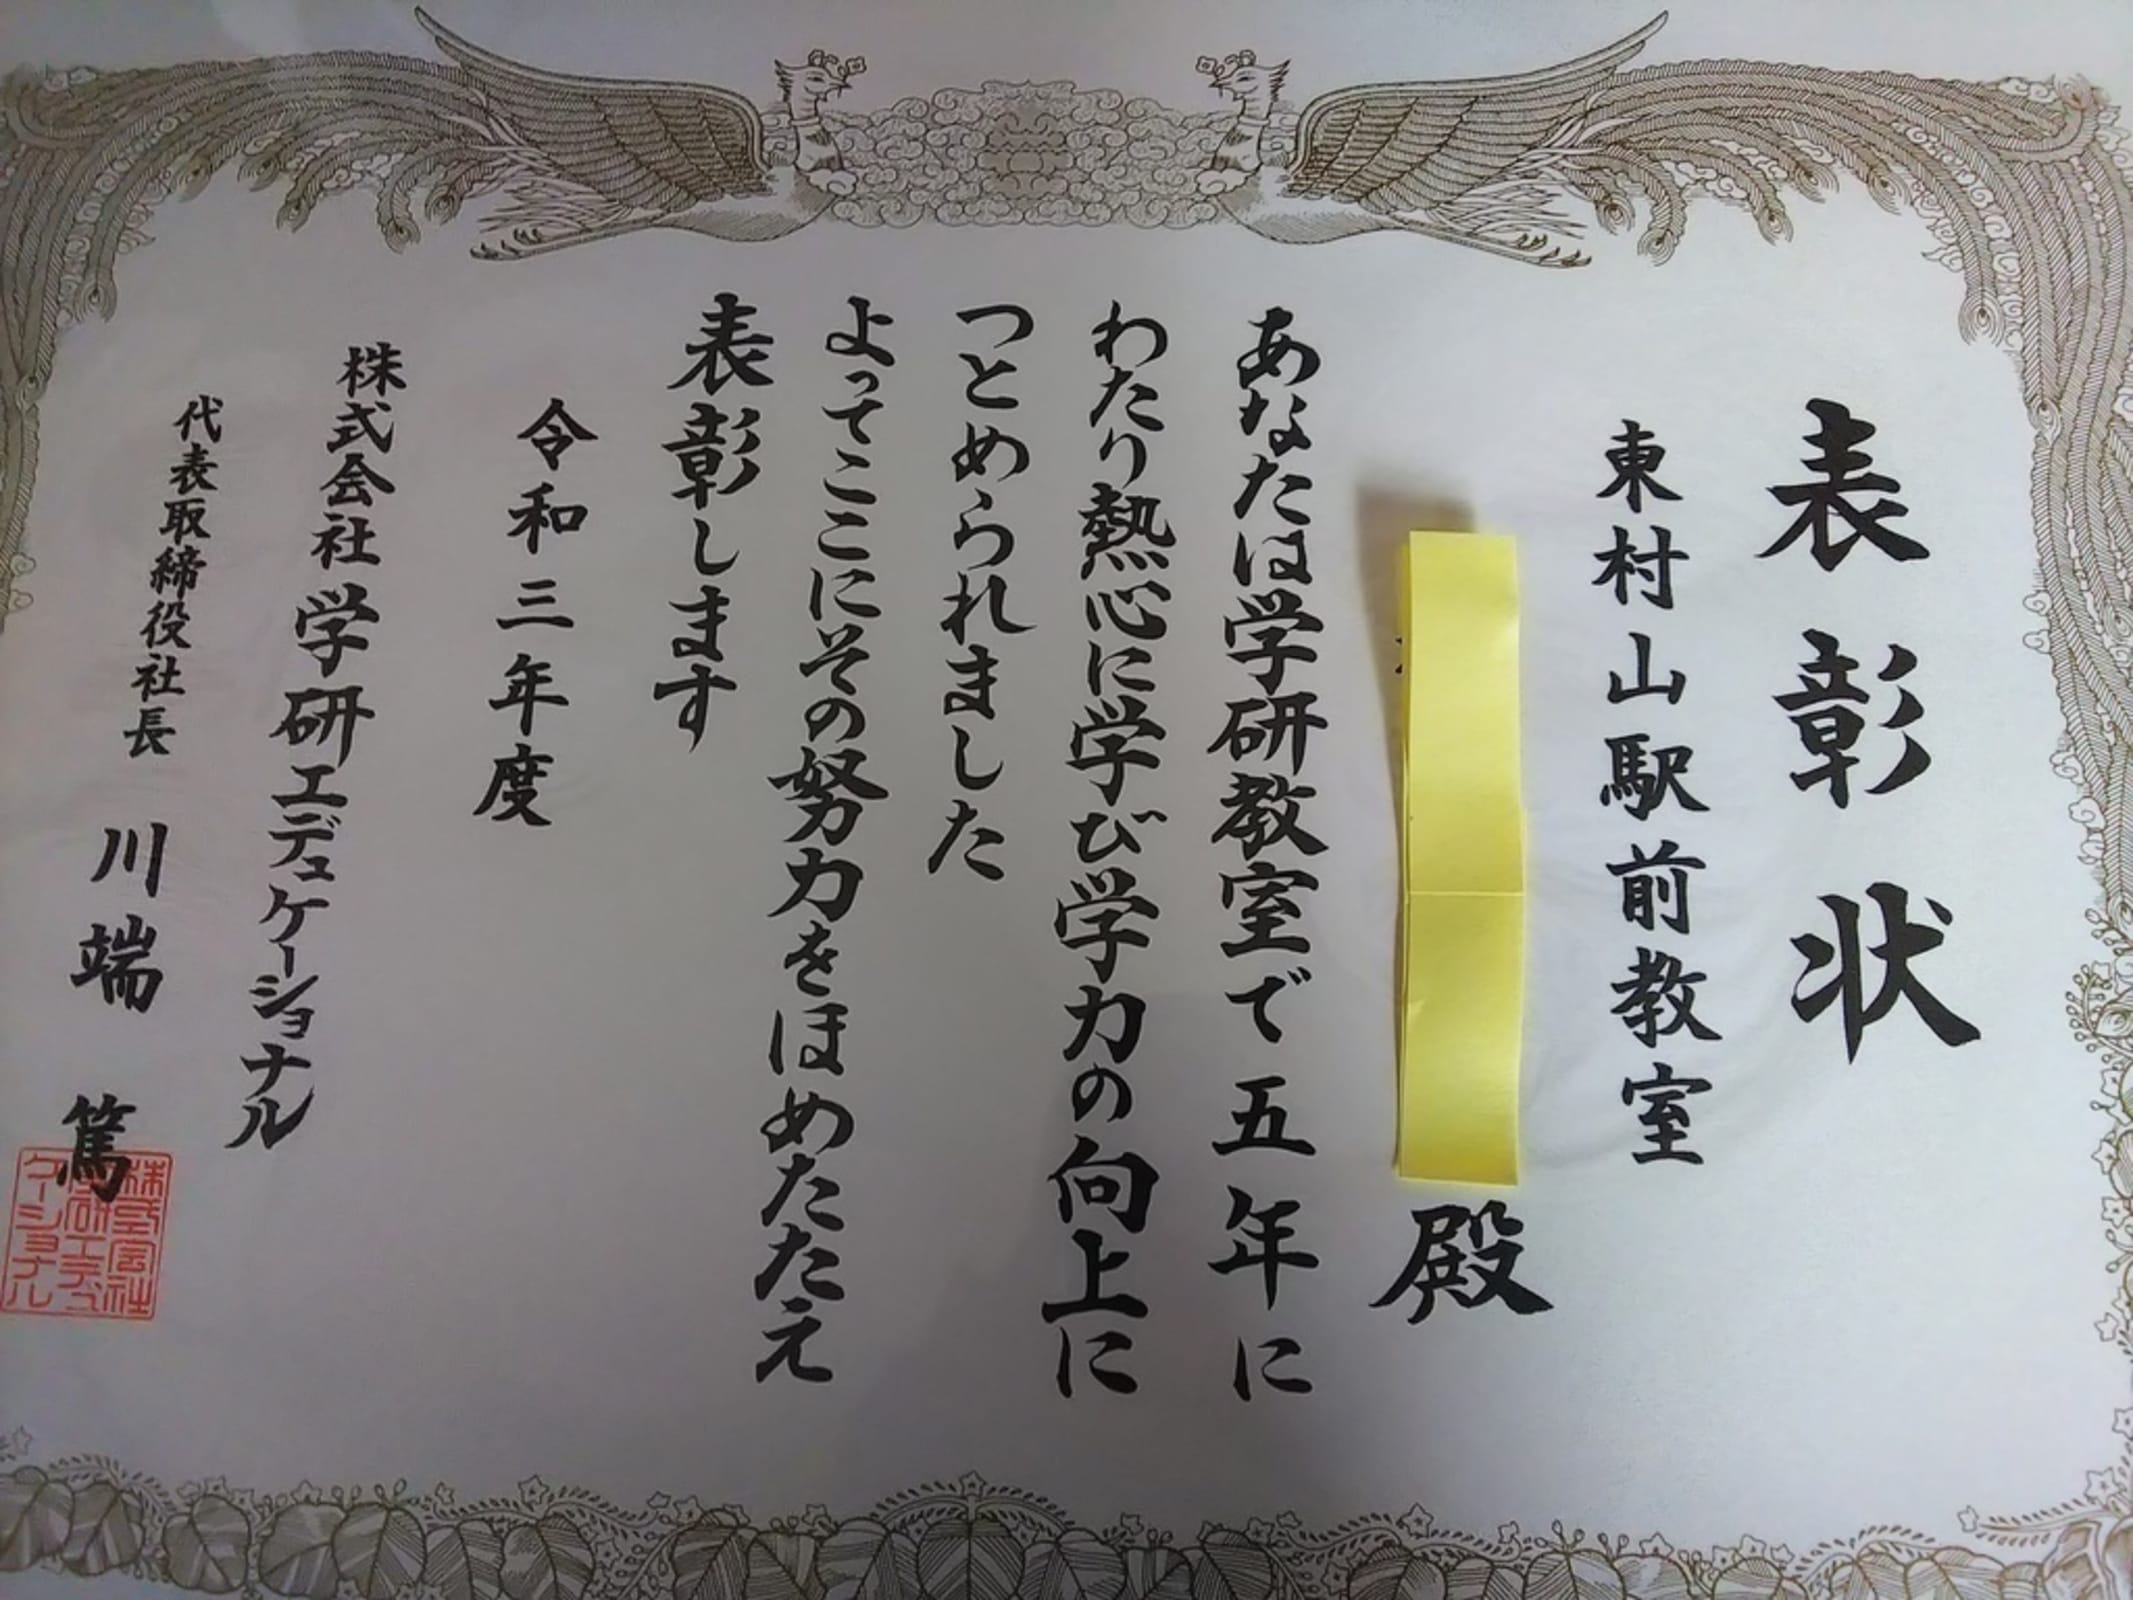 表彰状
東村山駅前教室
殿
あなたは学研教室で五年に
わたり熱心に学び学力の向上に
つとめられました
よってここにその努力をほめたたえ
表彰します
令和三年度
株式会社学研エデュケーショナル
代表取締役社長 川端 篤
株式会社
学研エデュ
ケーショナル